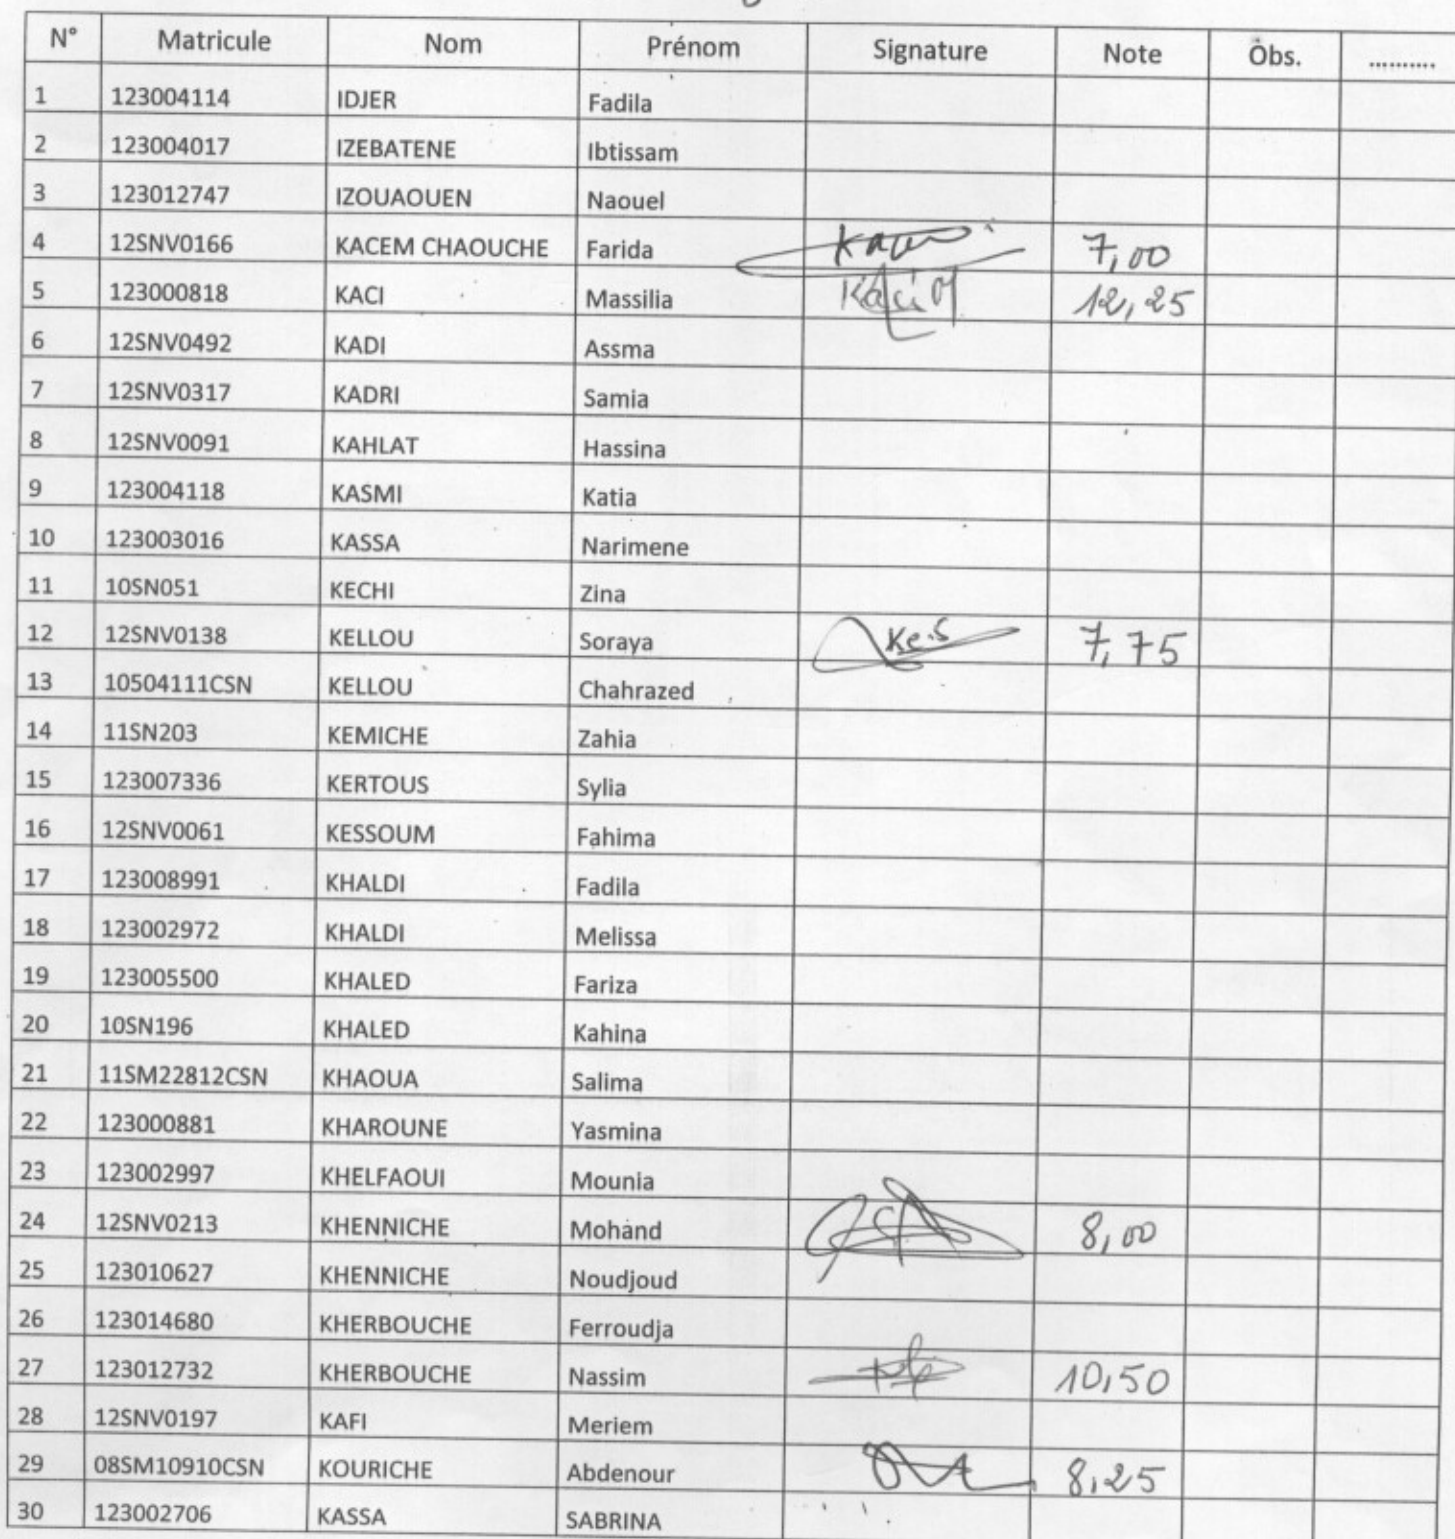 N° Matricule Nom Prénom Signature Note Obs. ..........
1 123004114 IDJER Fadila
2 123004017 IZEBATENE Ibtissam
3 123012747 IZOUAOUEN Naouel
4 12SNV0166 KACEM CHAOUCHE Farida 7,00
5 123000818 KACI Massilia Kaci M 12,25
6 12SNV0492 KADI Assma
7 12SNV0317 KADRI Samia
8 12SNV0091 KAHLAT Hassina
9 123004118 KASMI Katia
10 123003016 KASSA Narimene
11 10SN051 KECHI Zina
12 12SNV0138 KELLOU Soraya Ke.S 7,75
13 10504111CSN KELLOU Chahrazed
14 11SN203 KEMICHE Zahia
15 123007336 KERTOUS Sylia
16 12SNV0061 KESSOUM Fahima
17 123008991 KHALDI Fadila
18 123002972 KHALDI Melissa
19 123005500 KHALED Fariza
20 10SN196 KHALED Kahina
21 11SM22812CSN KHAOUA Salima
22 123000881 KHAROUNE Yasmina
23 123002997 KHELFAOUI Mounia
24 12SNV0213 KHENNICHE Mohand 8,00
25 123010627 KHENNICHE Noudjoud
26 123014680 KHERBOUCHE Ferroudja
27 123012732 KHERBOUCHE Nassim 10,50
28 12SNV0197 KAFI Meriem
29 08SM10910CSN KOURICHE Abdenour 8,25
30 123002706 KASSA SABRINA